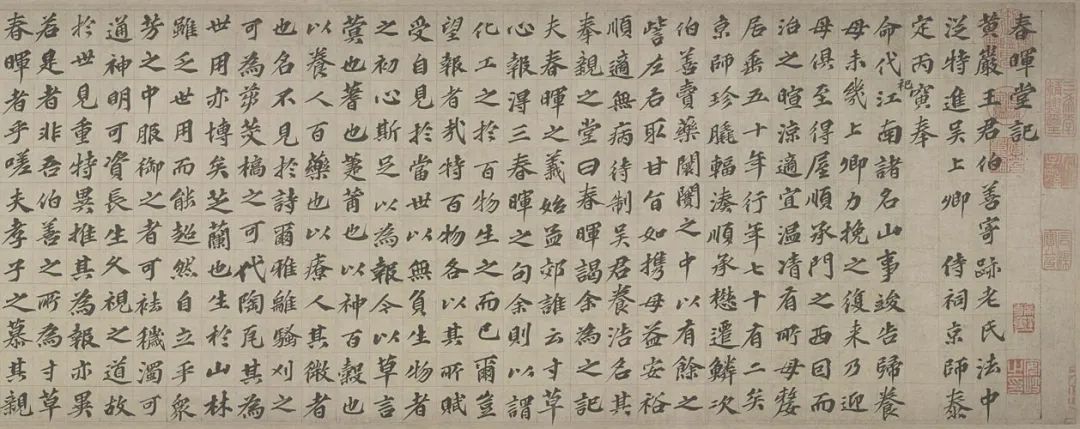 春暉堂記
黃巖王君伯善寄跡老氏法中
從特進吳上卿 侍祠京師泰
定丙寅奉
命代祀江南諸名山事竣告歸養
母未幾上卿力挽之復来乃迎
母俱至得屋順承門之西因而
治之暄涼適宜温凊有所母嫠
居垂五十年行年七十有二矣
京師珍臕輻湊順承懋遷鱗次
伯善賣藥闤闠之中以有餘之
訾左右取甘旨如携母益安裕
順適無病待制吴君養浩名其
奉親之堂曰春暉謁余為之記
夫春暉之義始孟郊誰云寸草
心報得三春暉之句余則以謂
化工之於百物生之而已爾豈
望報者哉特百物各以其所賦
受自見於當世以無負生物者
之初心斯足以為報今以草言
蓂也蓍也萐莆也以神百穀也
以養人百藥也以療人其微者
也名不見於詩爾雅離騷刈之
可為蒭茭槁之可代陶瓦其為
世用亦博矣芝蘭也生於山林
雖乏世用而能超然自立乎衆
芳之中服御之者可祛穢濁可
通神明可資長生久視之道故
於世見重特異推其為報亦異
若是者非吾伯善之所為寸草
春暉者乎嗟夫孝子之慕其親